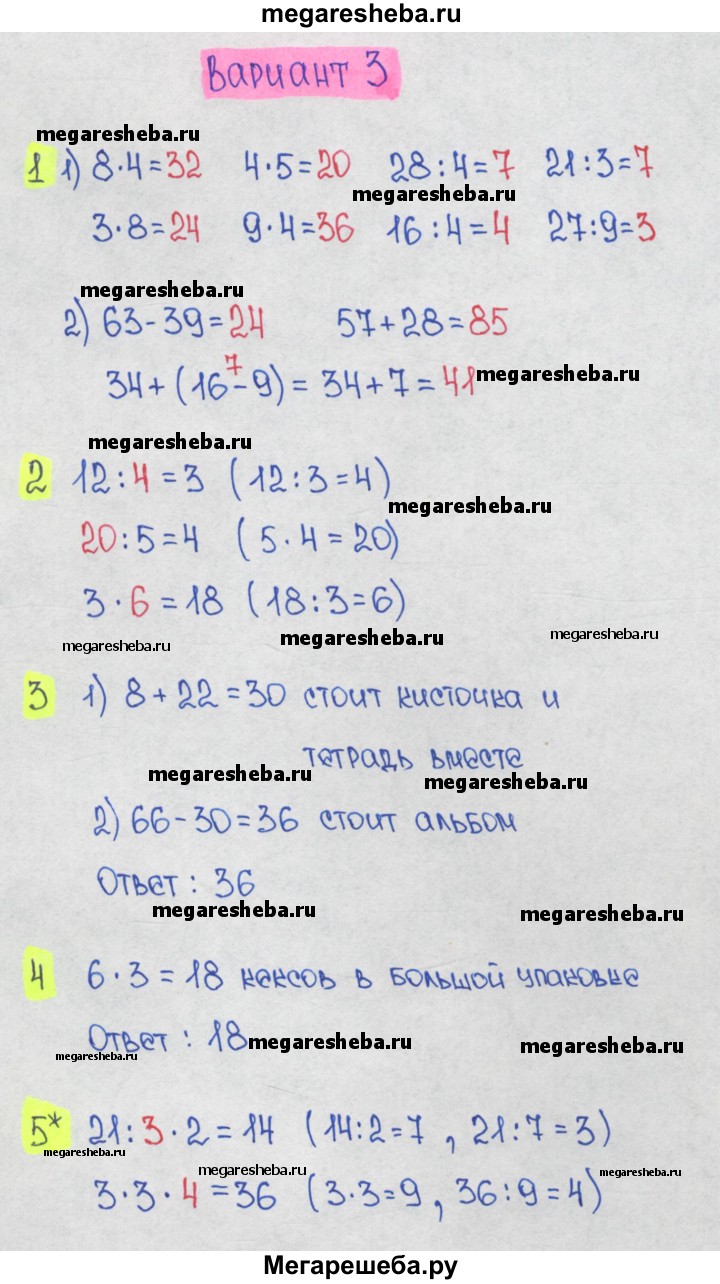 megaresheba.ru
Вариант 3
megaresheba.ru
1 1) 8·4=32 4·5=20 28:4=7 21:3=7
megaresheba.ru
3·8=24 9·4=36 16:4=4 27:9=3
megaresheba.ru
2) 63-39=24 57+28=85
7
34+(16-9)=34+7=41
megaresheba.ru
megaresheba.ru
2 12:4=3 (12:3=4)
megaresheba.ru
20:5=4 (5·4=20)
3·6=18 (18:3=6)
megaresheba.ru megaresheba.ru megaresheba.ru
3 1) 8+22=30 стоит кисточка и
тетрадь вместе
megaresheba.ru megaresheba.ru
2) 66-30=36 стоит альбом
Ответ: 36
megaresheba.ru megaresheba.ru
4 6·3=18 кексов в большой упаковке
Ответ: 18
megaresheba.ru megaresheba.ru
megaresheba.ru
5* 21:3·2=14 (14:2=7, 21:7=3)
megaresheba.ru megaresheba.ru megaresheba.ru
3·3·4=36 (3·3=9, 36:9=4)
Мегарешеба.ру